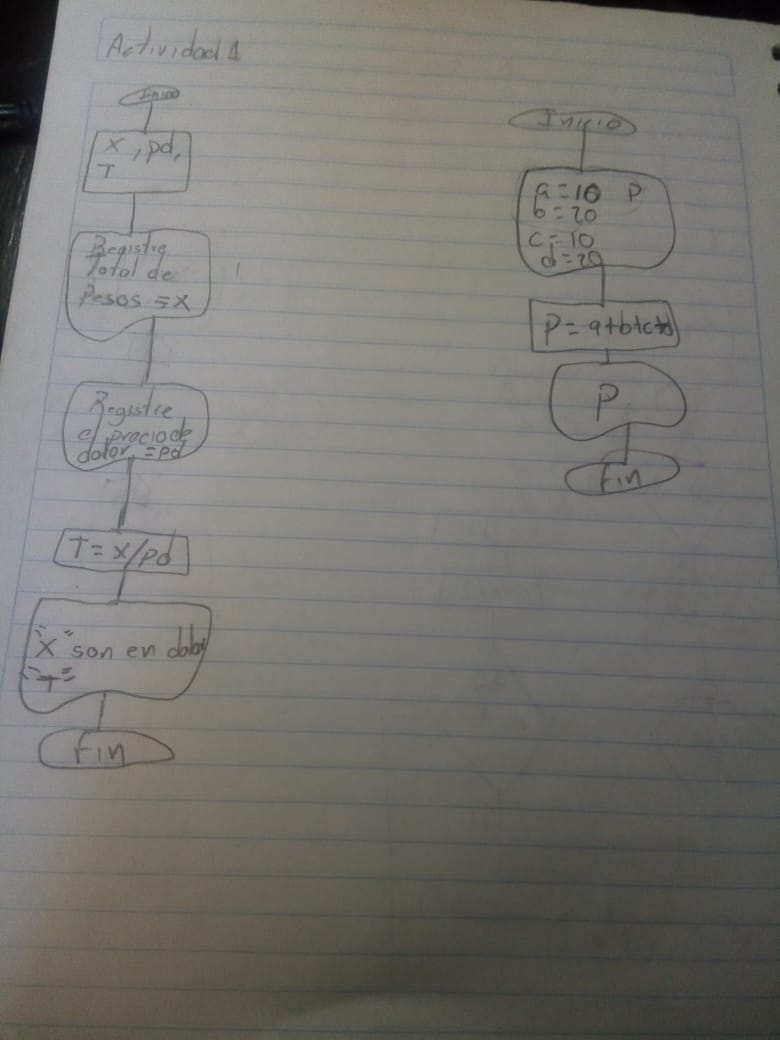 Actividad 1
Inicio
X, pd,
T
Registre
Total de
Pesos = x
Registre
el precio de
dolar = pd
T = x/pd
"X" son en dolar
"T"
Fin
Inicio
a = 10 P
b = 20
c = 10
d = 20
P = a+b+c+d
P
Fin